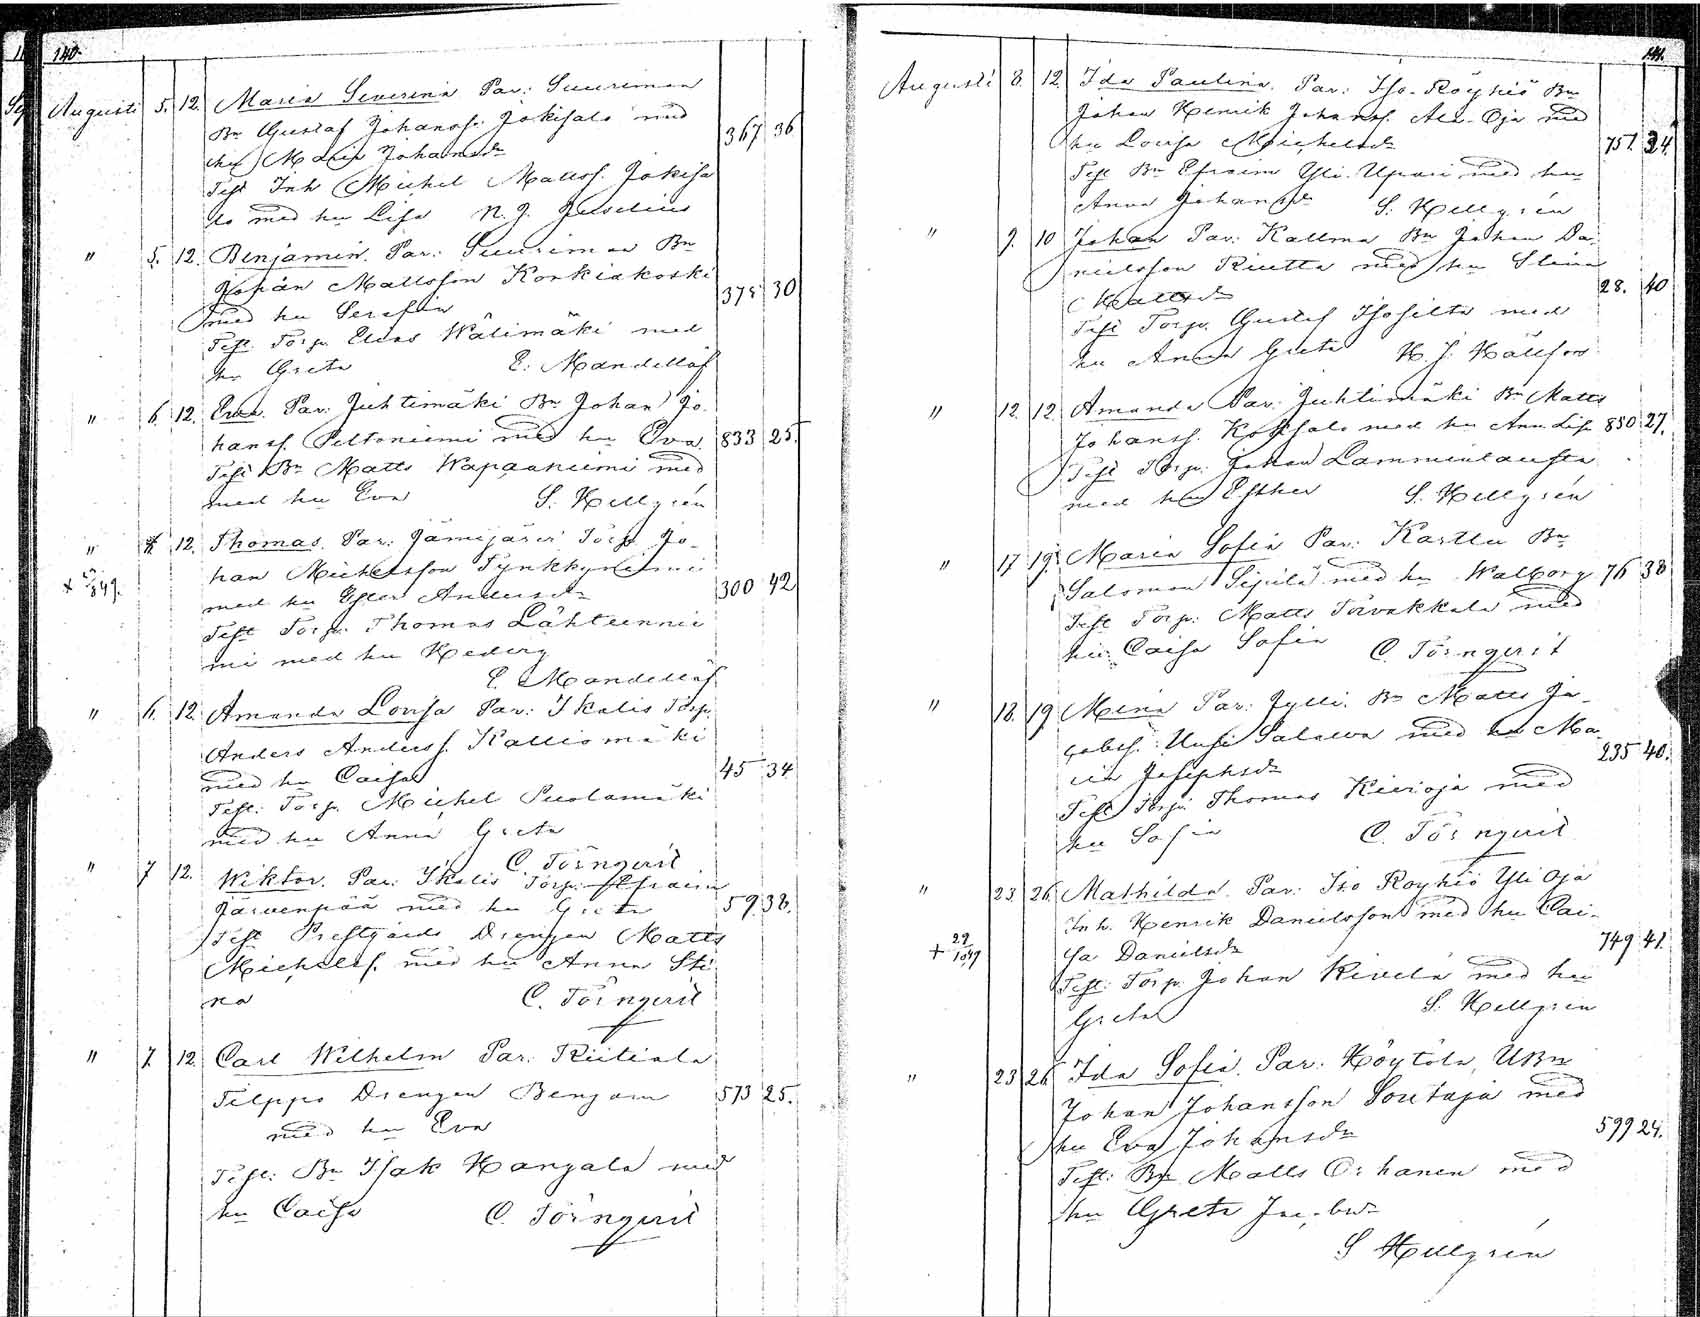 140.
Augusti 5. 12. Maria Severina Par: Suurimaa
Bn Gustaf Johanss. Jokisalo med
hu Maria Johansdr 367 36
Test Inh Michel Mattss. Jokisa
lo med hu Lisa N. J. Juselius
" 5. 12. Benjamin. Par: Suurimaa Bn
Johan Mattsson Konkiakoski
med hu Serafia 375 30
Test. Torp. Elias Wälimäki med
hu Greta E. Mandellöf
" 6 12. Eva. Par: Juhtimäki Bn Johan Jo-
hanss. Peltoniemi med hu Eva. 833 25.
Test Bn Matts Wapaaniemi med
med hu Eva S. Hellgrén
" 12. Thomas. Par: Jämijärvi Torp Jo-
han Michelsson Tynkkyniemi
med hu Ester Andersdr 300 42
Test Torp. Thomas Lähteennie
mi med hu Hedvig
E. Mandellöf
" 6. 12. Amanda Lovisa Par: Ikalis Torp.
Anders Anderss. Kalliomäki
med hu Caisa 45 34.
Test: Torp. Michel Puolamäki
med hu Anna Greta
C. Törnqvist
" 7 12. Wiktor. Par: Ikalis Torp: Efraim
Järvenpää med hu Greta 59. 38.
Test Prestgårds Drengen Matts
Michelss. med hu Anna Sti
na C. Törnqvist
" 7. 12. Carl Wilhelm Par: Riitiala
Filppo Drengen Benjam 573 25.
med hu Eva
Test: Bn Isak Kangala med
hu Caisa C. Törnqvist
141.
Augusti 8. 12. Ida Paulina. Par: Iso-Röyhiö Bn
Johan Henrik Johanss. Ala-Oja med
hu Lovisa Michelsdr 751. 24.
Test Bn Efraim Yli-Upari med hu
Anna Johansdr S. Hellgrén
" 9. 10 Johan Par: Kallma Bn Johan Da-
nielsson Riutta med hu Stina
Mattsdr 28. 40
Test Torp. Gustaf Isosilta med
hu Anna Greta H. J. Hällfors
" 12. 12. Amanda Par: Juhtimäki Bn Matts
Johanss. Koksalo med hu Ann Lis. 850 27.
Test Torp. Johan Lamminlausta
med hu Esther S. Hellgrén
" 17 19. Maria Sofia Par: Karttu Bn
Salomon Sipilä med hu Walborg 76 38
Test Torp: Matts Torvakkala med
hu Caisa Sofia C. Törnqvist
" 18. 19 Mina Par: Jylli. Bn Matts Ja-
cobss. Uusi Salava med hu Ma-
ria Josephsdr 235 40.
Test Torp. Thomas Kivioja med
hu Sofia C. Törnqvist
" 23 26. Mathilda. Par: Iso Röyhiö Yli Oja
Inh. Henrik Danielsson med hu Cai-
+ 29/1849 sa Danielsdr 749 41.
Test: Torp. Johan Kivelä med hu
Greta S. Hellgren
" 23 26. Ida Sofia. Par: Höytölä, UBn
Johan Johansson Soutaja med
hu Eva Johansdr 599 24.
Test: Bn Matts Orhanen med
hu Greta Jacobsdr
S Hellgrén